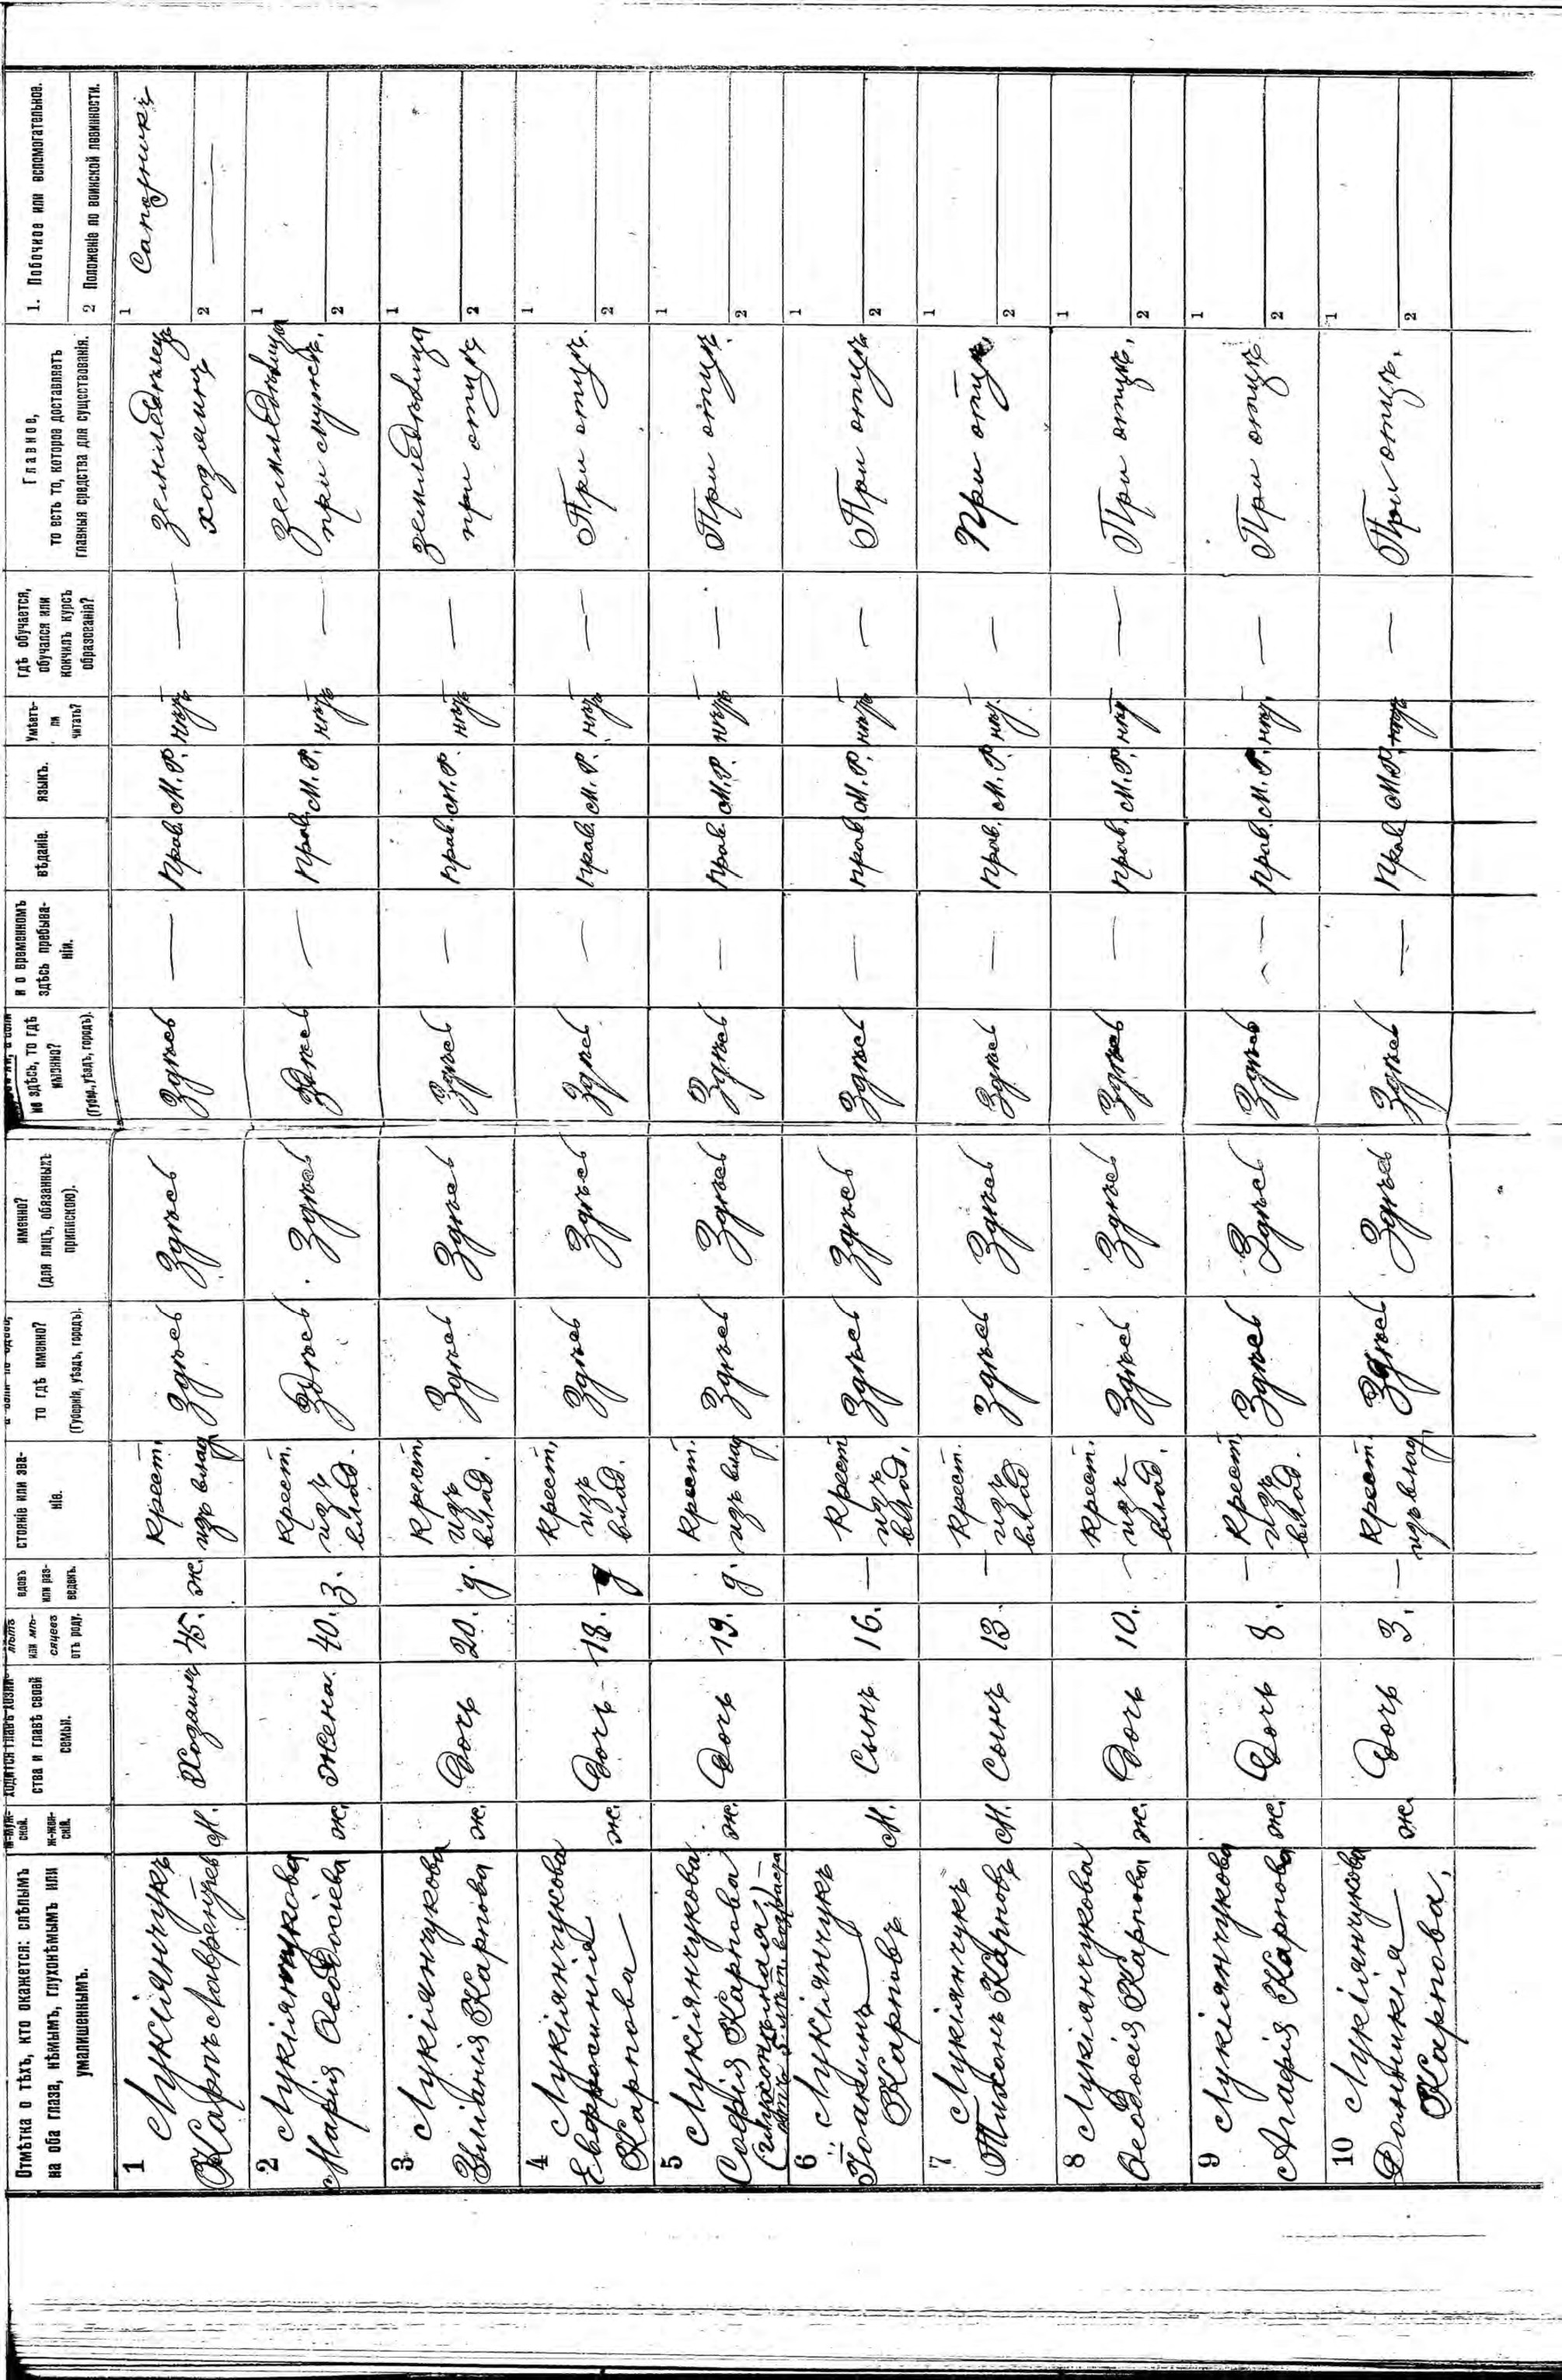 Отмѣтка о тѣхъ, кто окажется: слѣпымъ
на оба глаза, нѣмымъ, глухонѣмымъ или
умалишеннымъ.
м-муж-
ской.
ж-жен-
скій.
ства и главѣ своей
семьи.
или мѣ-
сяцевъ
отъ роду.
вдовъ
или раз-
веденъ.
стояніе или зва-
ніе.
то гдѣ именно?
(Губернія, уѣздъ, городъ).
именно?
(для лицъ, обязанныхъ
припискою).
не здѣсь, то гдѣ
именно?
(Губер., уѣздъ, городъ).
и о временномъ
здѣсь пребыва-
ніи.
вѣданіе.
языкъ.
Умѣетъ-
ли
читать?
гдѣ обучается,
обучался или
кончилъ курсъ
образованія?
Главное,
то есть то, которое доставляетъ
главныя средства для существованія.
1. Побочное или вспомогательное.
2 Положеніе по воинской повинности.
1 Лукіянчукъ
Карпъ Лаврентьевъ
М. Хозяинъ 45. ж. Крест. изъ влад. Здѣсь Здѣсь Здѣсь — Прав. М. Р. нѣтъ — земледѣлецъ хозяинъ
1 Сапожникъ
2 —
2 Лукіянчукова
Марія Ѳеодосіева
ж. Жена. 40. з. Крест. изъ влад. Здѣсь Здѣсь Здѣсь — Прав. М. Р. нѣтъ — земледѣлица при мужѣ.
1
2
3 Лукіянчукова
Уліанія Карпова
ж. Дочь 20. д. Крест. изъ влад. Здѣсь Здѣсь Здѣсь — прав. М. Р. нѣтъ — земледѣлица при отцѣ
1
2
4 Лукіянчукова
Евфросинія
Карпова
ж. Дочь 18. д Крест. изъ влад. Здѣсь Здѣсь Здѣсь — прав. М. Р. нѣтъ — При отцѣ.
1
2
5 Лукіянчукова
Софія Карпова
ж. Дочь 19. д. Крест. изъ влад Здѣсь Здѣсь Здѣсь — прав. М. Р. нѣтъ — При отцѣ.
1
2
6 Лукіянчукъ
Іоакимъ
Карповъ
М. Сынъ 16. — Крест изъ влад. Здѣсь Здѣсь Здѣсь — прав. М. Р. нѣтъ — При отцѣ
1
2
7 Лукіянчукъ
Тихонъ Карповъ
М. Сынъ 13. — Крест. изъ влад Здѣсь Здѣсь Здѣсь — прав. М. Р. нѣт. — При отцѣ.
1
2
8 Лукіянчукова
Ѳеодосія Карпова
ж. Дочь 10. — Крест. изъ влад. Здѣсь Здѣсь Здѣсь — прав. М. Р. нѣт — При отцѣ.
1
2
9 Лукіянчукова
Агафія Карпова
ж. Дочь 8. — Крест. изъ влад. Здѣсь Здѣсь Здѣсь — прав. М. Р. нѣт. — При отцѣ
1
2
10 Лукіянчукова
Домникія
Карпова.
ж. Дочь 3. — Крест. изъ влад. Здѣсь Здѣсь Здѣсь — Прав М. Р. нѣтъ — При отцѣ.
1
2